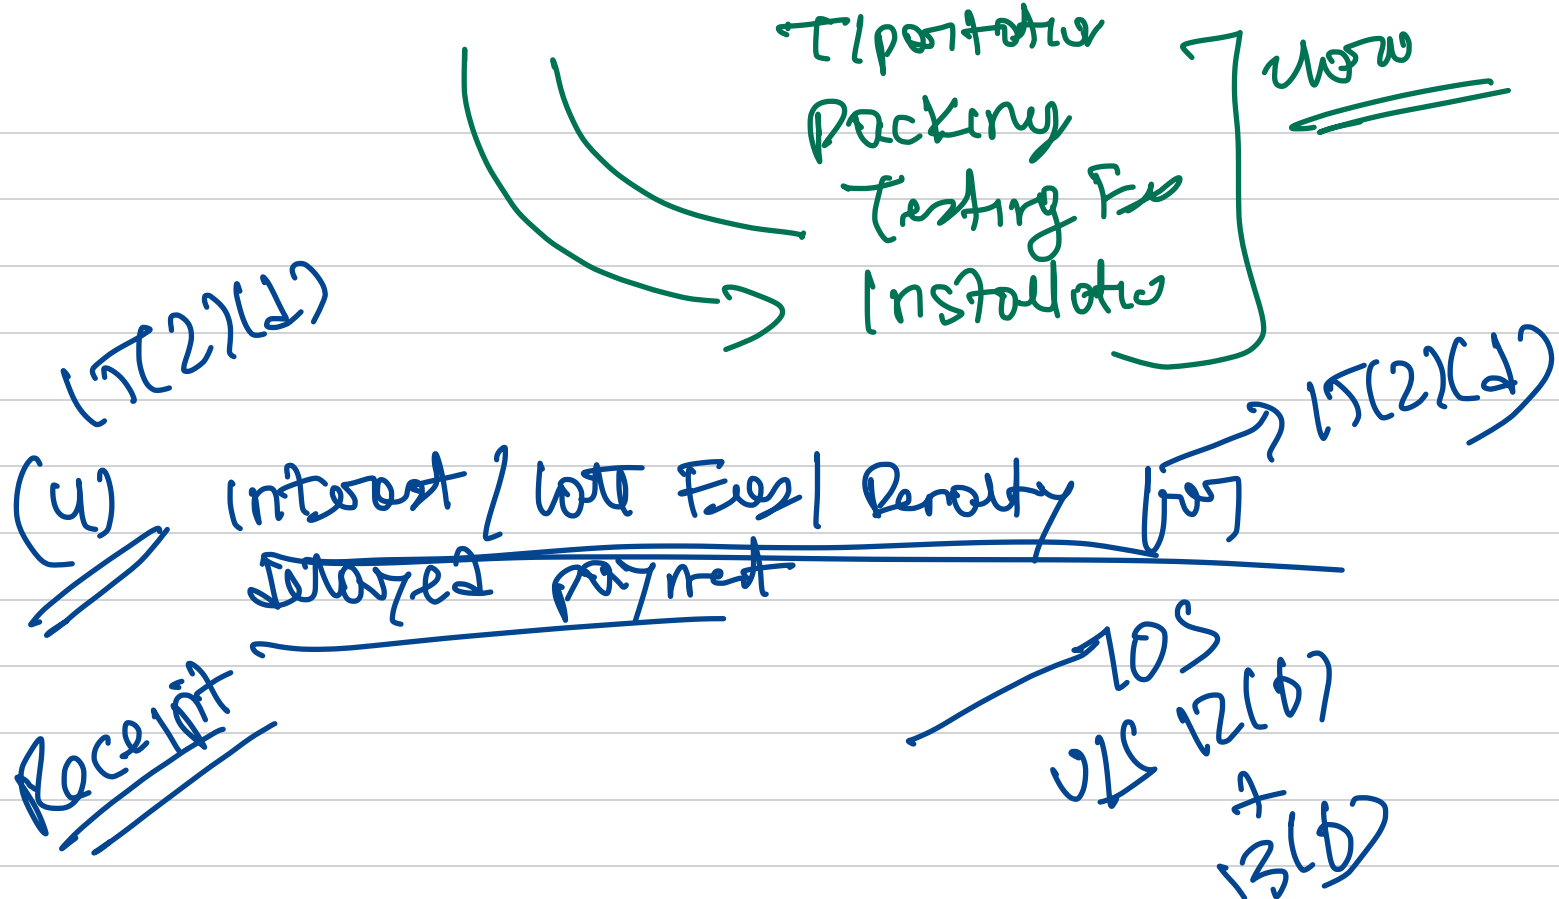 T/portation
Packing
Testing Fees
Installatio
15(2)(d)
15(2)(d)
(4) Interest / Late Fees / Penalty for
delayed payment
Receipt
TOS
U/S 12(6)
+
13(6)